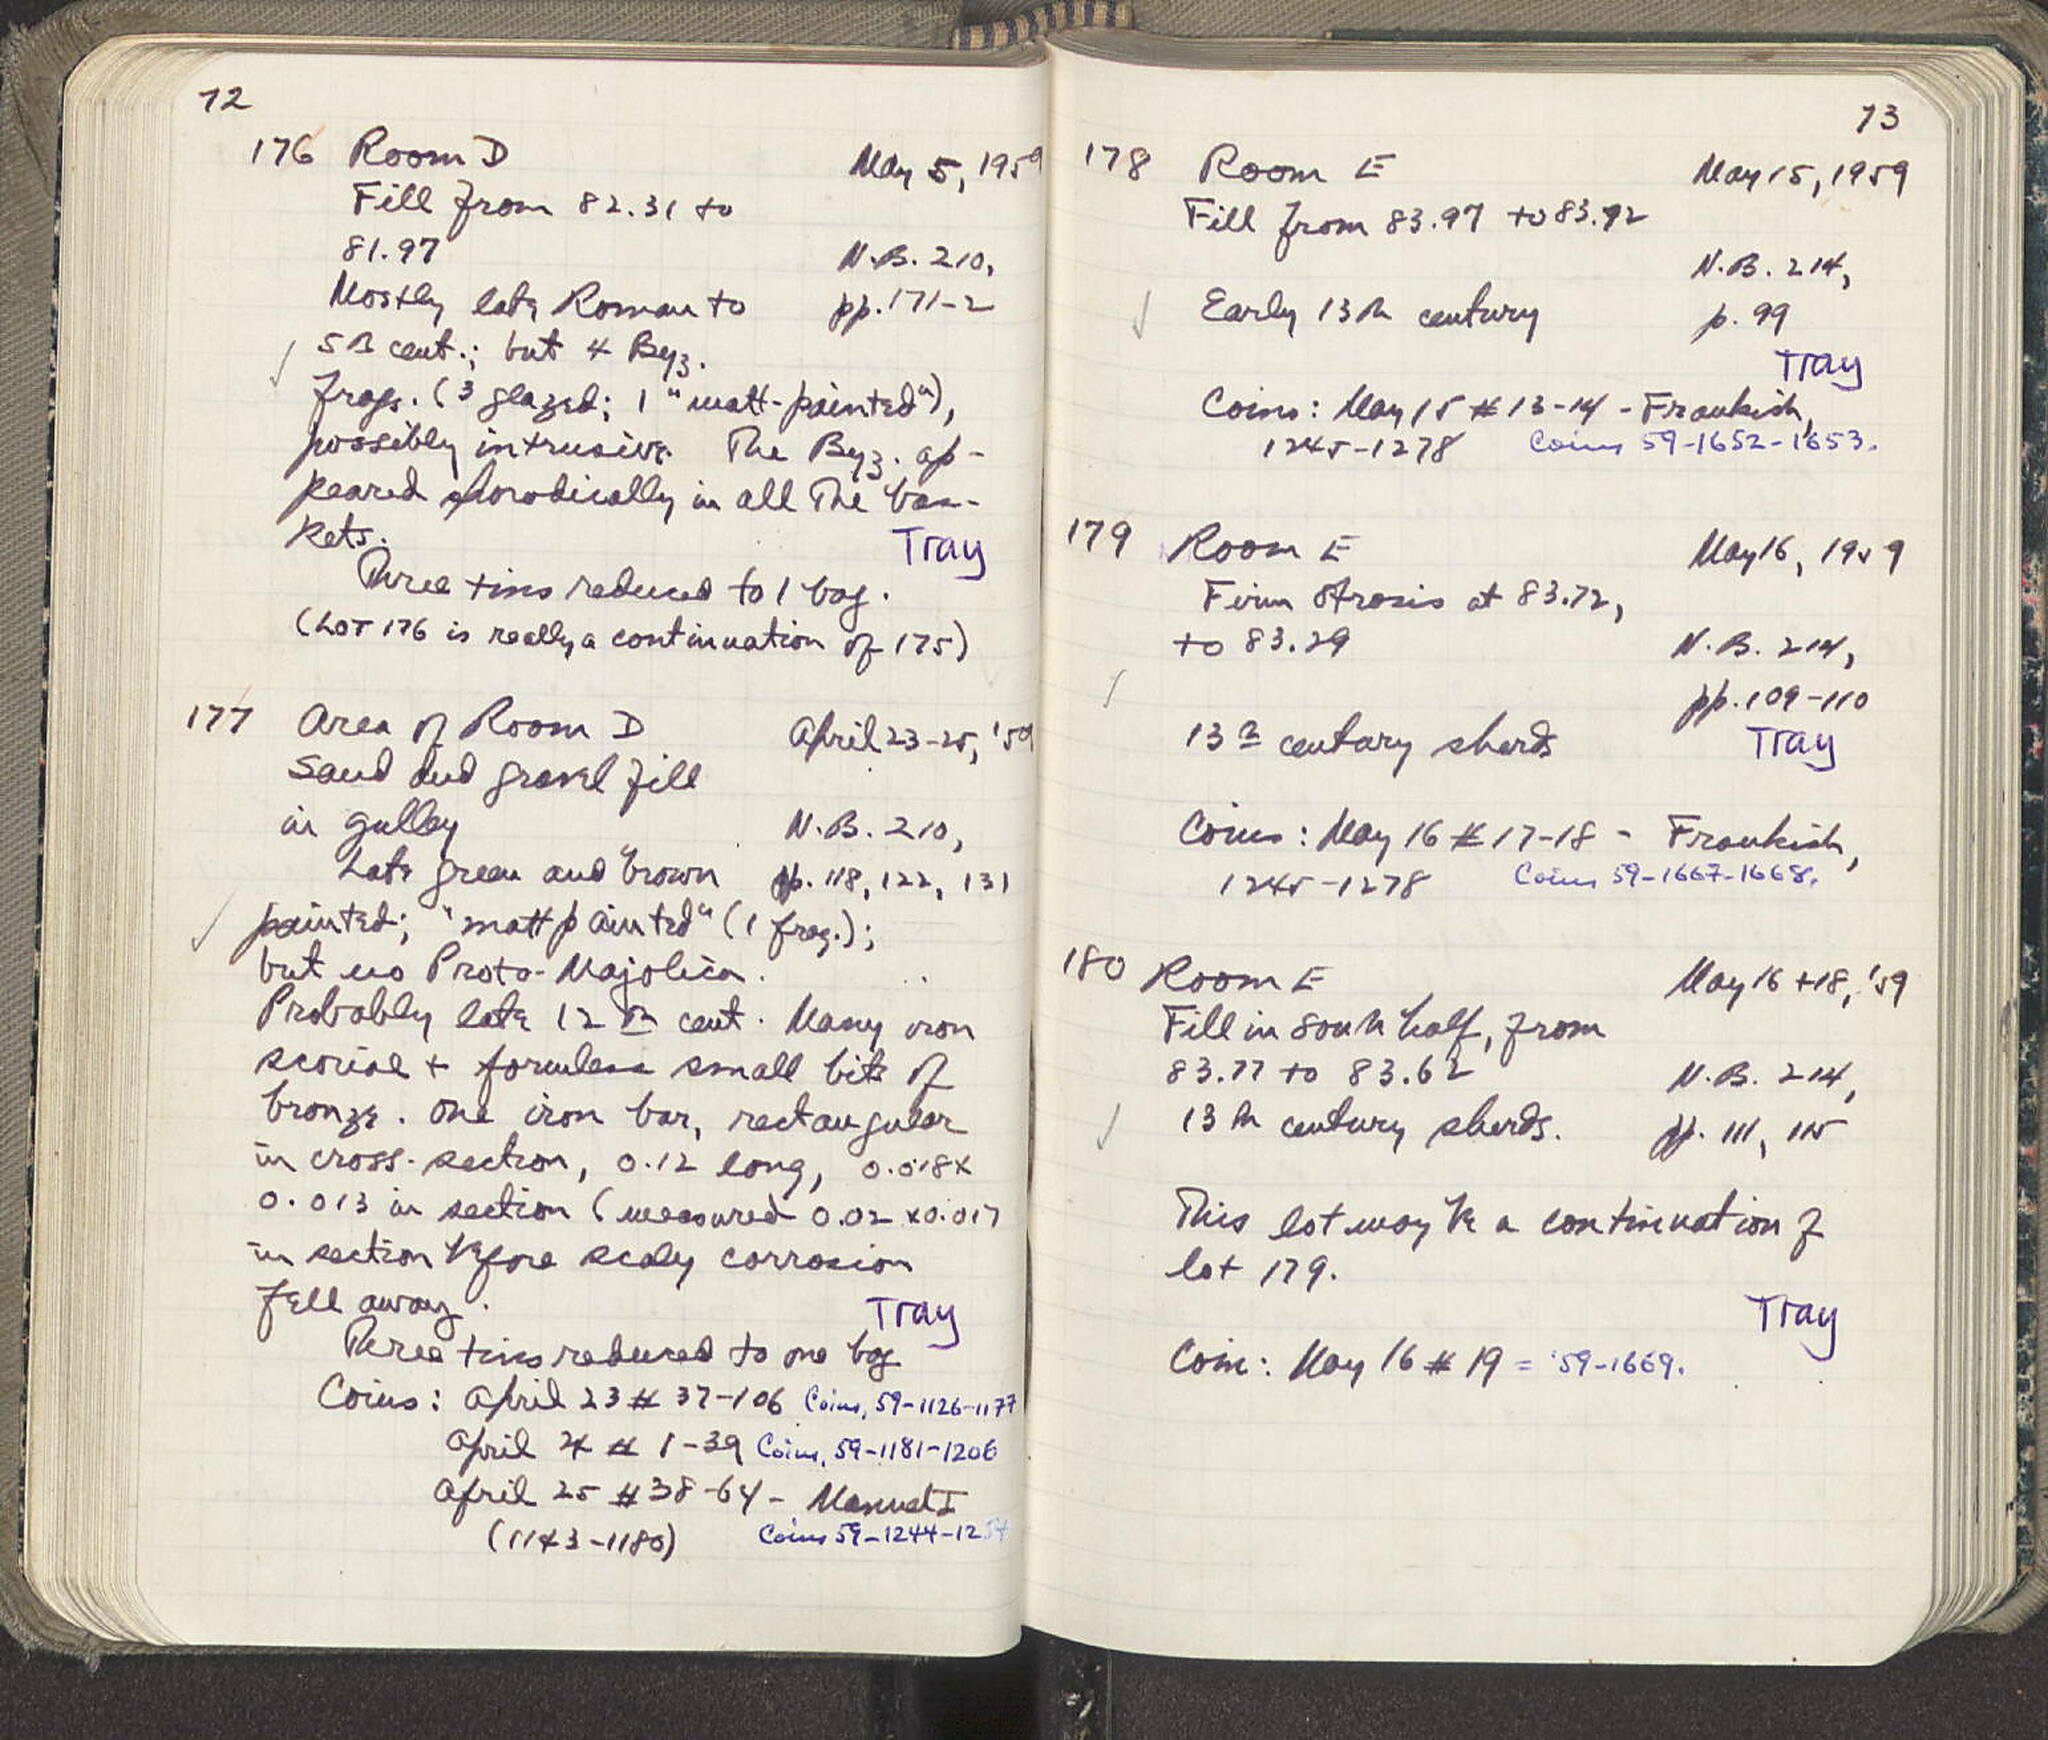 72
176 Room D May 5, 1959
Fill from 82.31 to
81.97 N.B. 210,
Mostly late Roman to pp. 171-2
5th cent.; but 4 Byz.
frags. (3 glazed; 1 "matt-painted"),
possibly intrusive. The Byz. ap-
peared sporadically in all the bas-
kets. Tray
Three tins reduced to 1 bag.
(Lot 176 is really a continuation of 175)
177 Area of Room D April 23-25, '59
Sand and gravel fill
in gulley N.B. 210,
Late green and brown pp. 118, 122, 131
painted; "matt painted" (1 frag.);
but no Proto-Majolica.
Probably late 12th cent. Many iron
scoriae + formless small bits of
bronze. One iron bar, rectangular
in cross-section, 0.12 long, 0.018x
0.013 in section (measured 0.02 x0.017
in section before scaly corrosion
fell away. Tray
Three tins reduced to one bag
Coins: April 23 # 37-106 Coins, 59-1126-1177
April 24 # 1-39 Coins, 59-1181-1206
April 25 #38-64 - Manuel I
(1143-1180) Coins 59-1244-1254
73
178 Room E May 15, 1959
Fill from 83.97 to 83.92
N.B. 214,
Early 13th century p. 99
Tray
Coins: May 15 # 13-14 - Frankish,
1245-1278 Coins 59-1652-1653.
179 Room E May 16, 1959
Firm strosis at 83.72,
to 83.29 N.B. 214,
pp. 109-110
13th century sherds Tray
Coins: May 16 # 17-18 - Frankish,
1245-1278 Coins 59-1667-1668.
180 Room E May 16 +18, '59
Fill in south half, from
83.77 to 83.62 N.B. 214,
13th century sherds. pp. 111, 115
This lot may be a continuation of
lot 179.
Tray
Coin: May 16 # 19 = '59-1669.